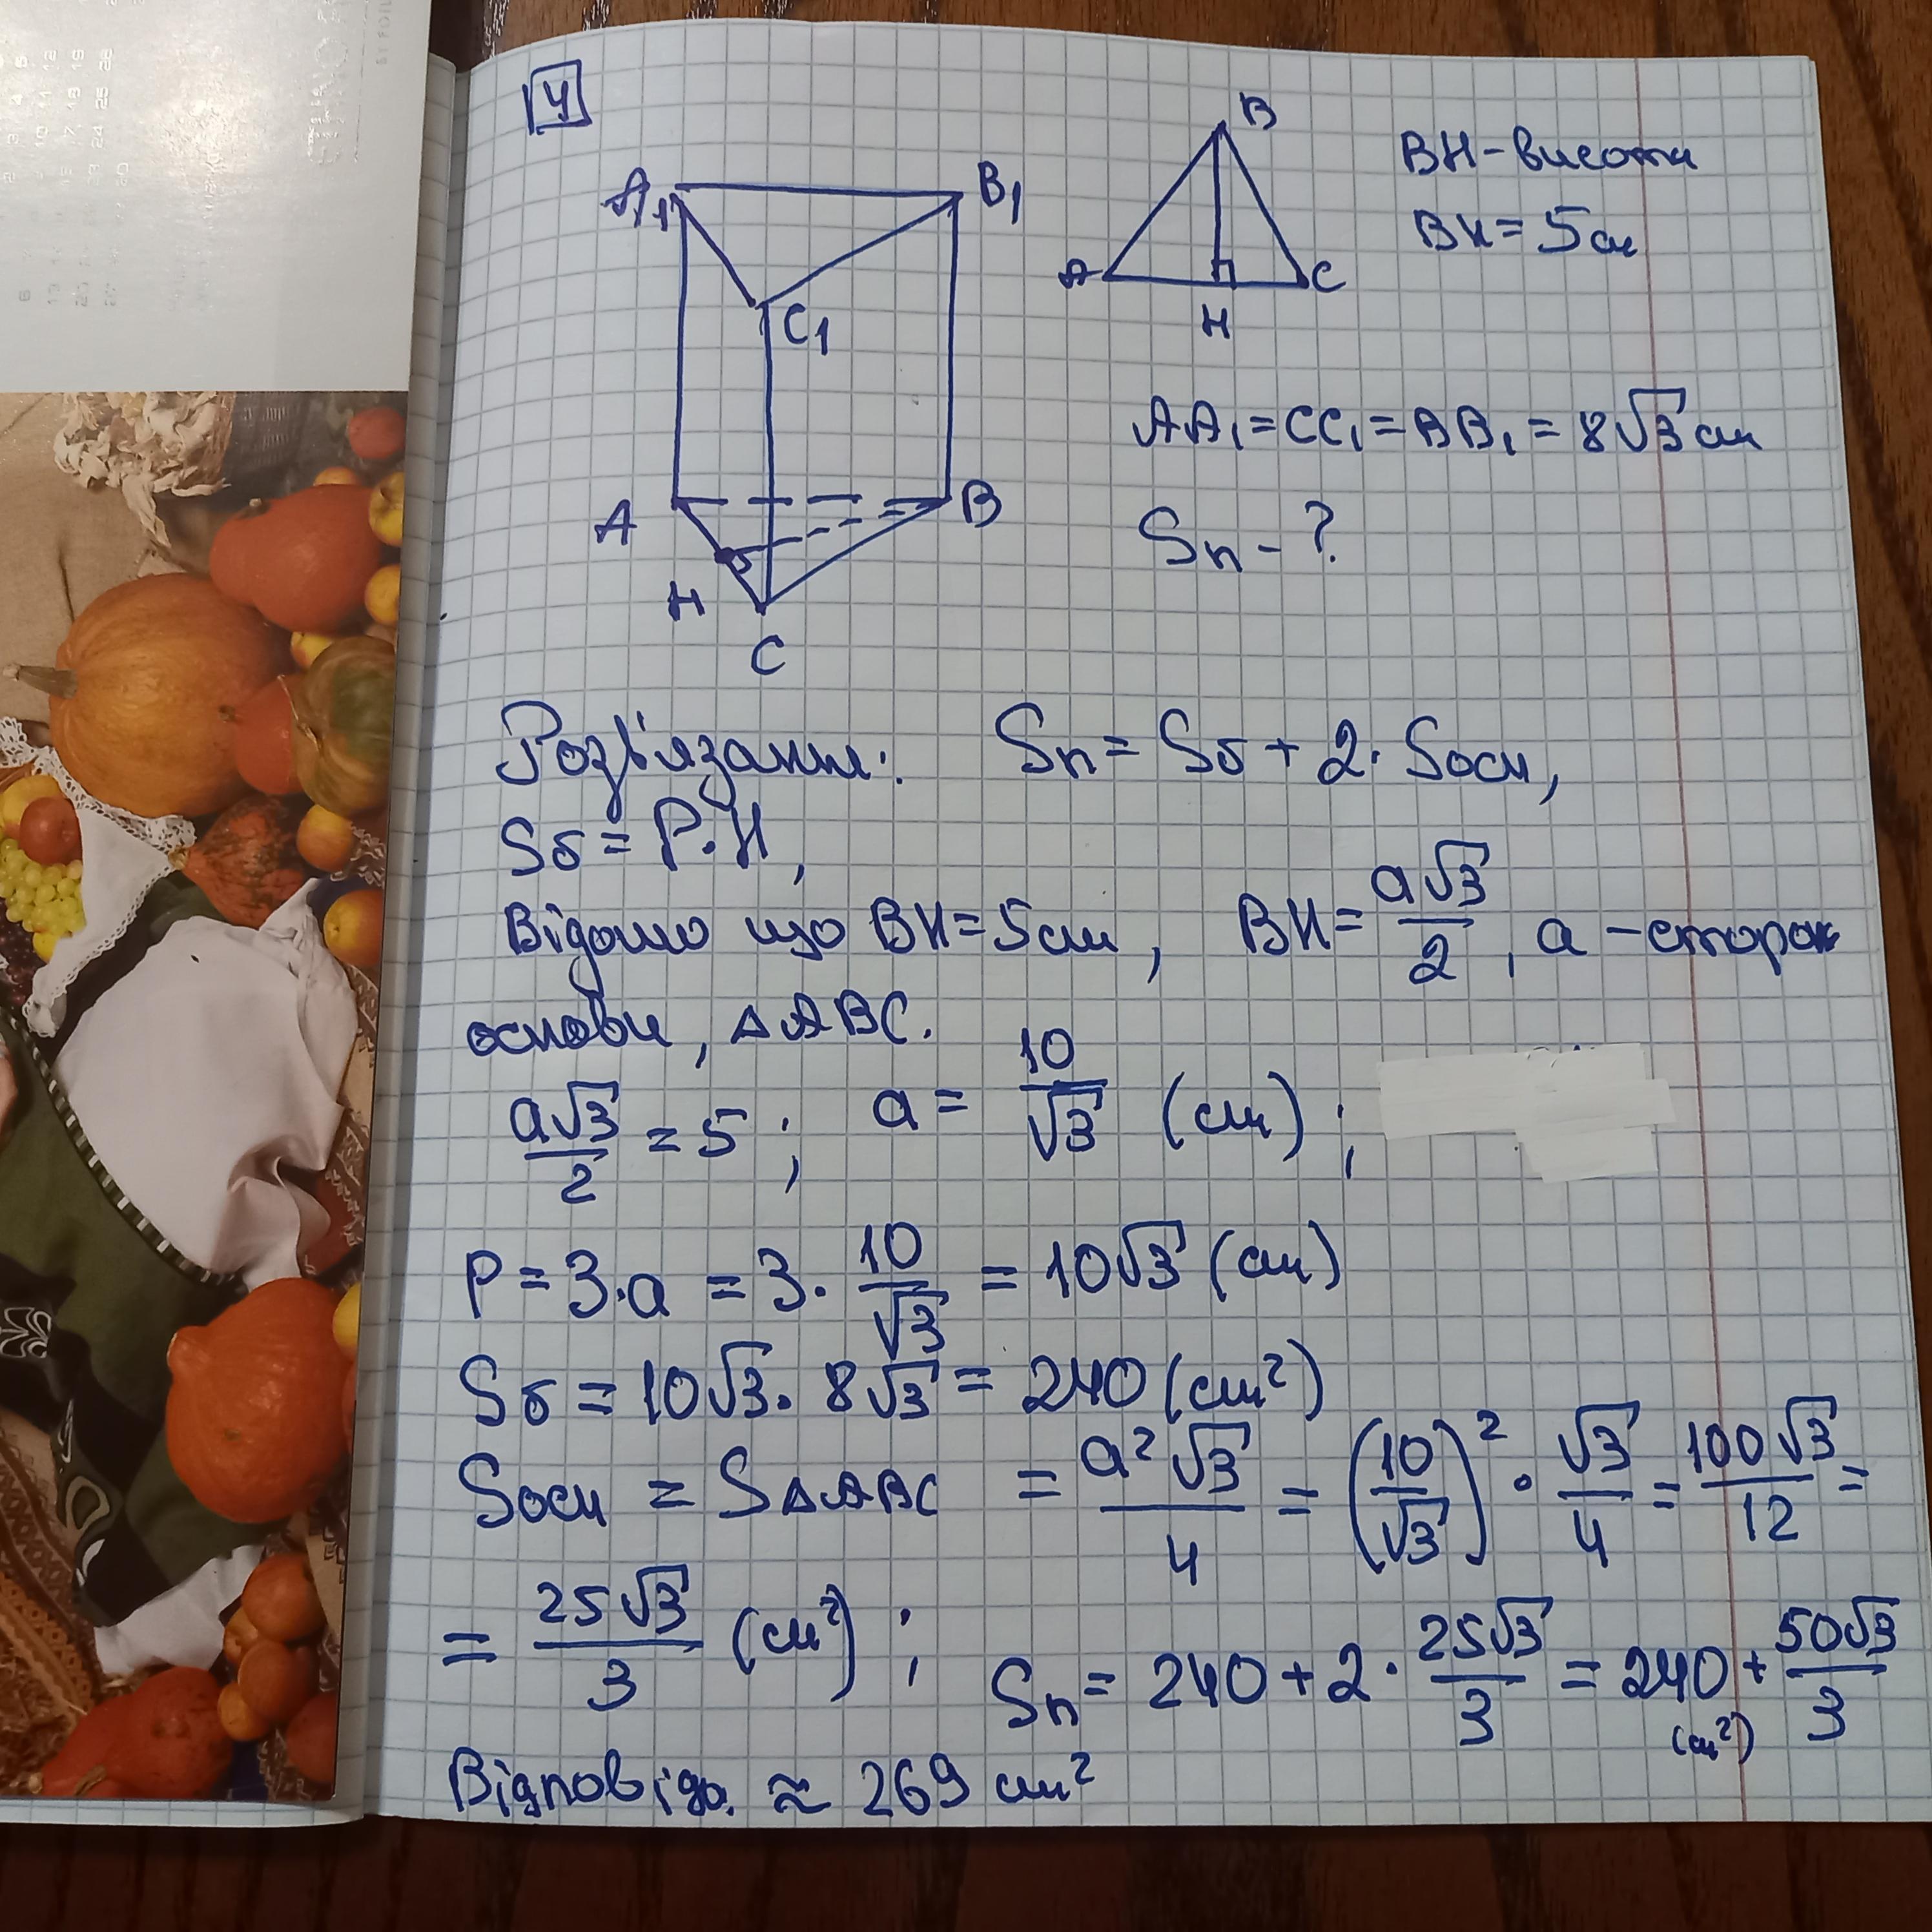 4
A₁ B₁ C₁ A B C H
B A C H
BH - висота
BH = 5 см
AA₁ = CC₁ = BB₁ = 8√3 см
Sп - ?
Розв'язання: Sп = Sб + 2 · Sосн,
Sб = P·H,
Відомо що BH = 5 см, BH = a√3/2, a - сторона
основи, △ABC.
a√3/2 = 5; a = 10/√3 (см);
P = 3·a = 3 · 10/√3 = 10√3 (см)
Sб = 10√3 · 8√3 = 240 (см²)
Sосн = S△ABC = a²√3/4 = (10/√3)² · √3/4 = 100√3/12 =
= 25√3/3 (см²); Sп = 240 + 2 · 25√3/3 = 240 + 50√3/3
(см²)
Відповідь ≈ 269 см²